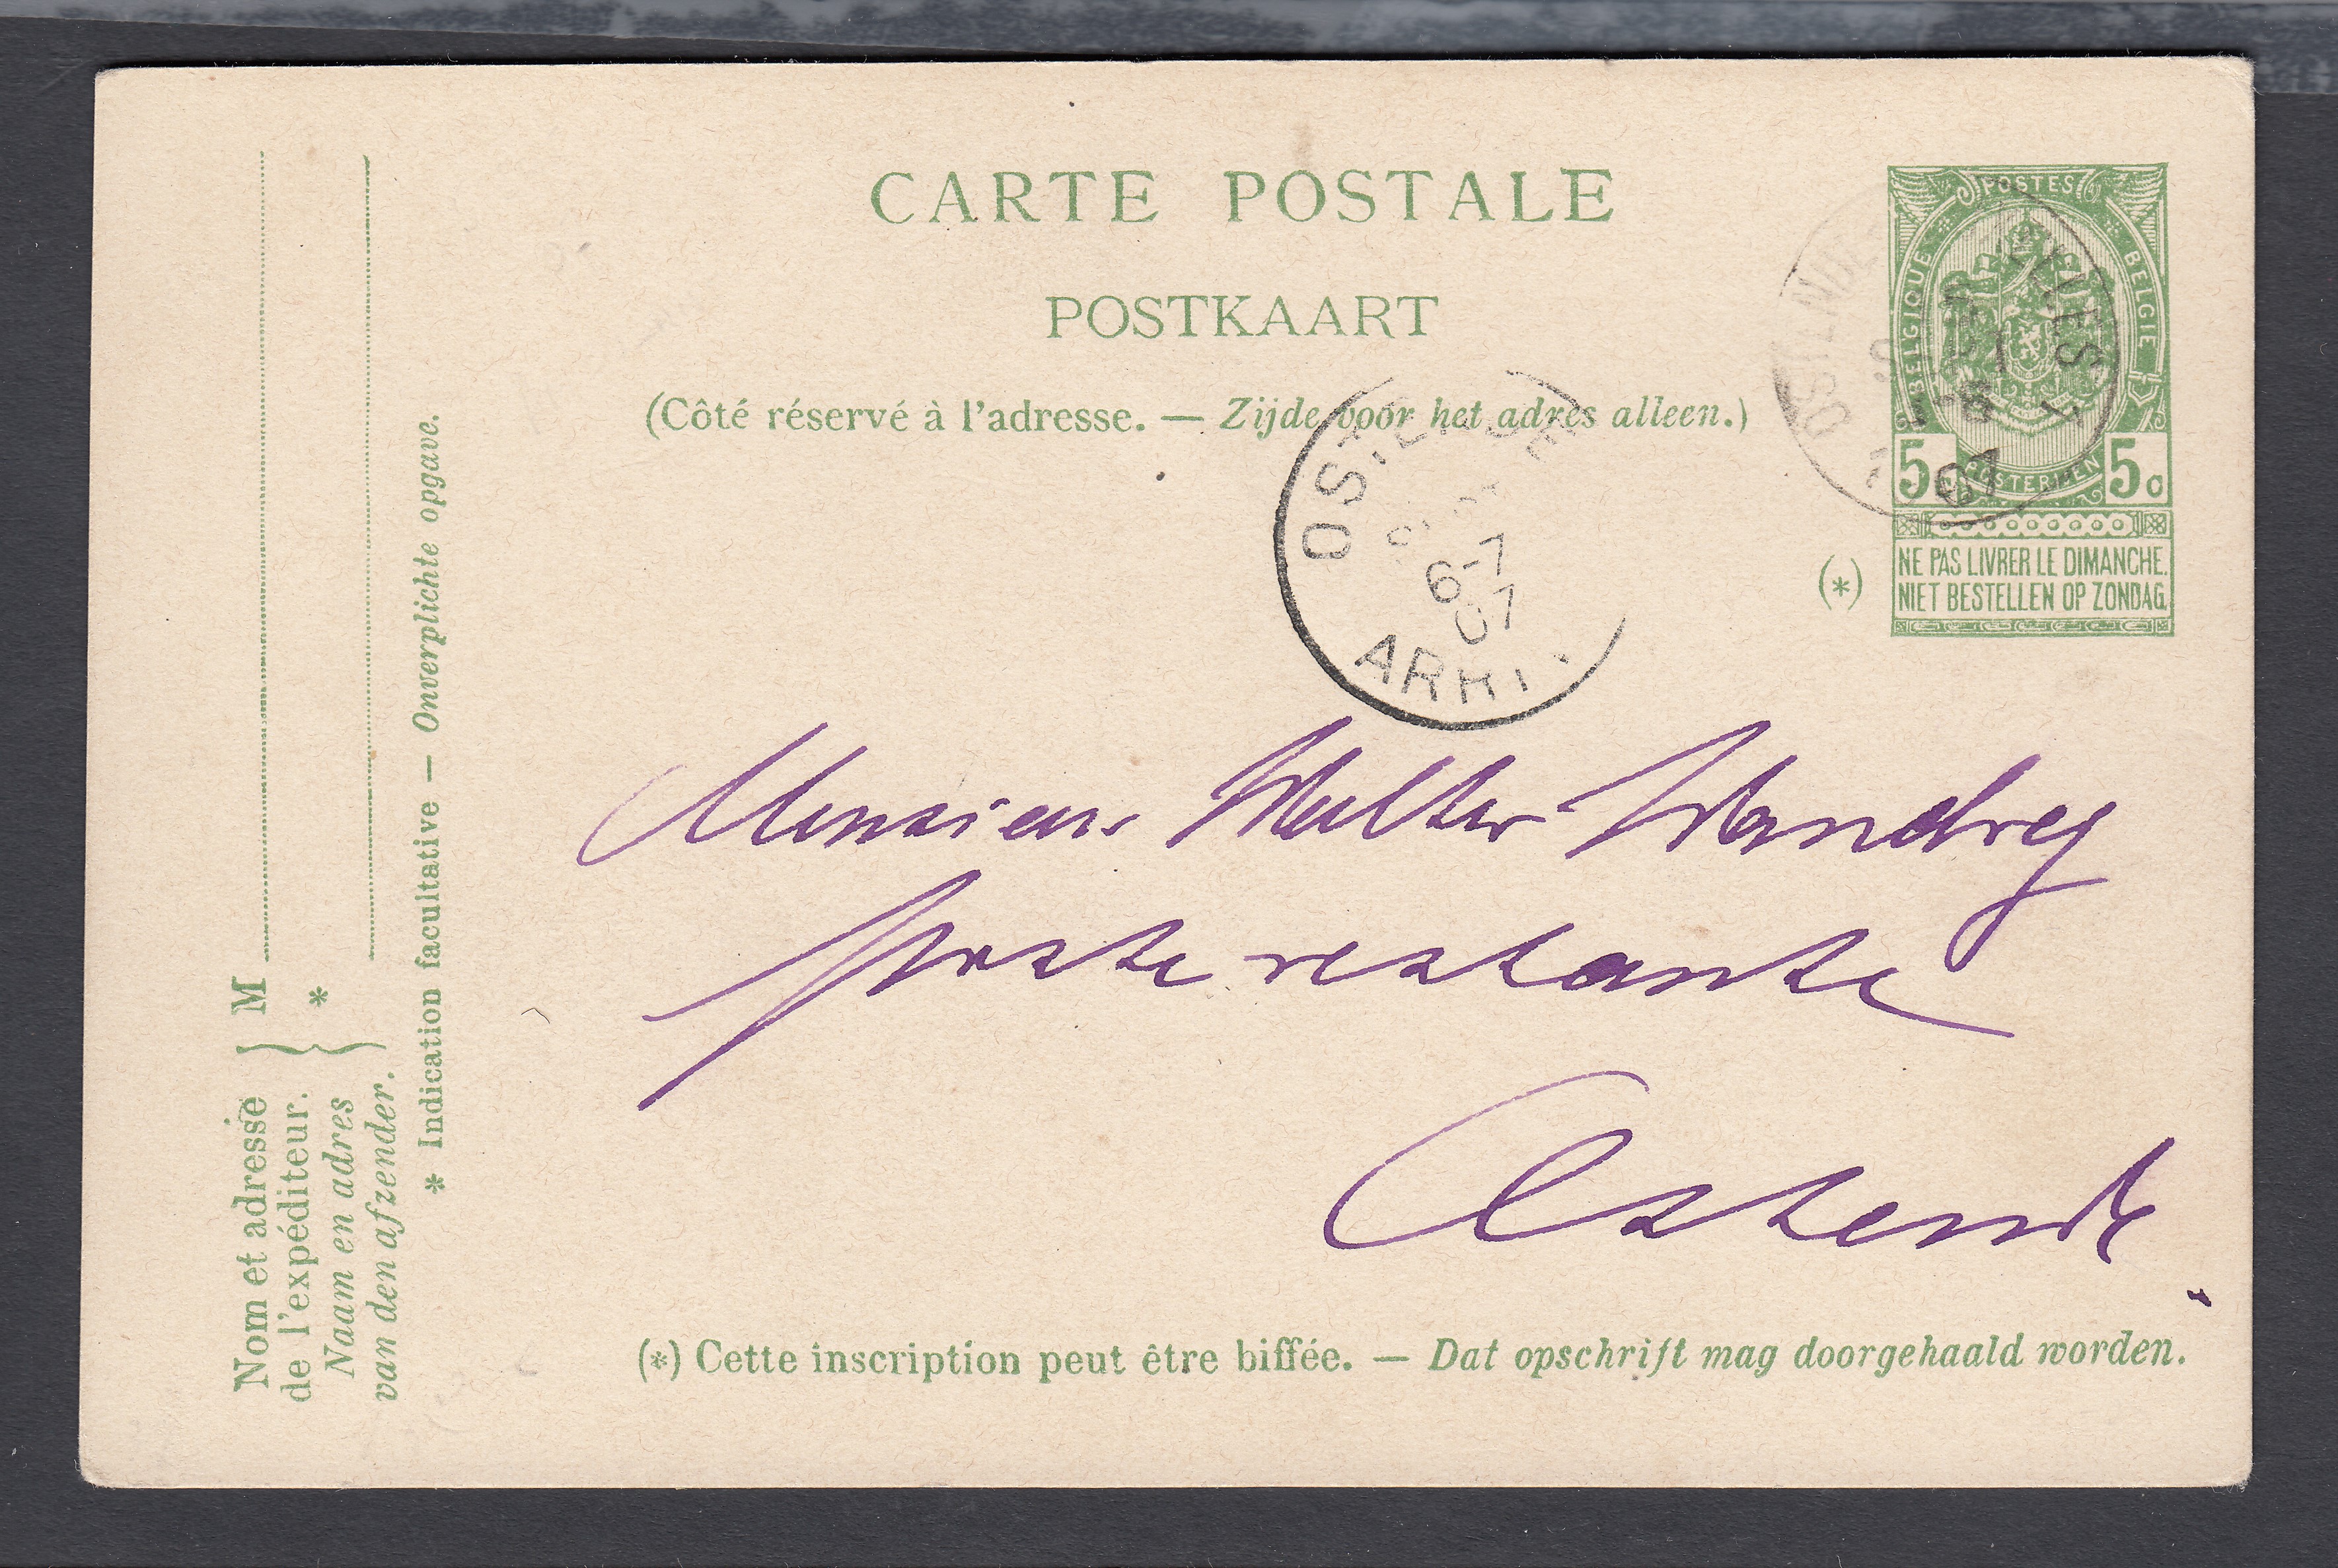 CARTE POSTALE
POSTKAART
(Côté réservé à l'adresse. — Zijde voor het adres alleen.)
POSTES
BELGIQUE BELGIE
5 POSTERIJEN 5c
NE PAS LIVRER LE DIMANCHE.
NIET BESTELLEN OP ZONDAG.
(*)
OSTENDE
07
OSTENDE
6-7
07
Monsieur Walter Wandrey
poste restante
Ostende.
(*) Cette inscription peut être biffée. — Dat opschrift mag doorgehaald worden.
Nom et adresse
de l'expéditeur.
Naam en adres
van den afzender.
M
*
* Indication facultative — Onverplichte opgave.